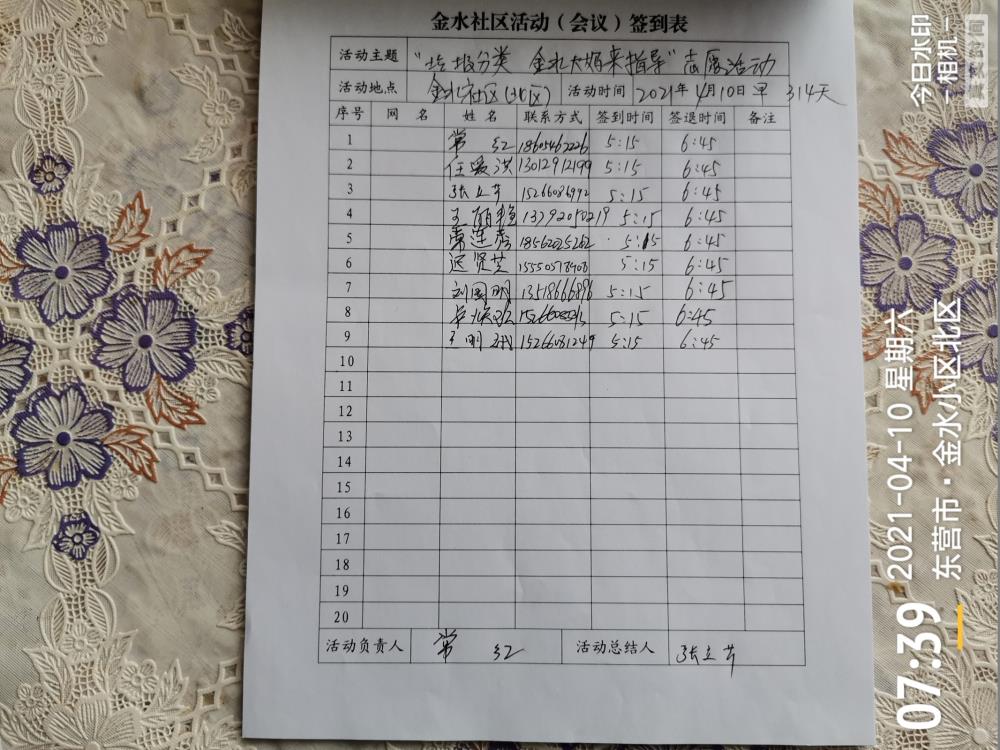 金水社区活动（会议）签到表
活动主题 "垃圾分类 金水大妈来指导"志愿活动
活动地点 金水社区(北区) 活动时间 2021年4月10日早 314天
序号 网 名 姓 名 联系方式 签到时间 签退时间 备注
1 常 红 18605462226 5:15 6:45
2 任爱洪 13012912199 5:15 6:45
3 张立芹 15266086992 5:15 6:45
4 13792050219 5:15 6:45
5 18562025262 5:15 6:45
6 迟贤芝 15550578908 5:15 6:45
7 刘国明 13518666896 5:15 6:45
8 5:15 6:45
9 王明斌 15266081249 5:15 6:45
10
11
12
13
14
15
16
17
18
19
20
活动负责人 常 红 活动总结人 张立芹
今日水印
-相机-
07:39
2021-04-10 星期六
东营市·金水小区北区